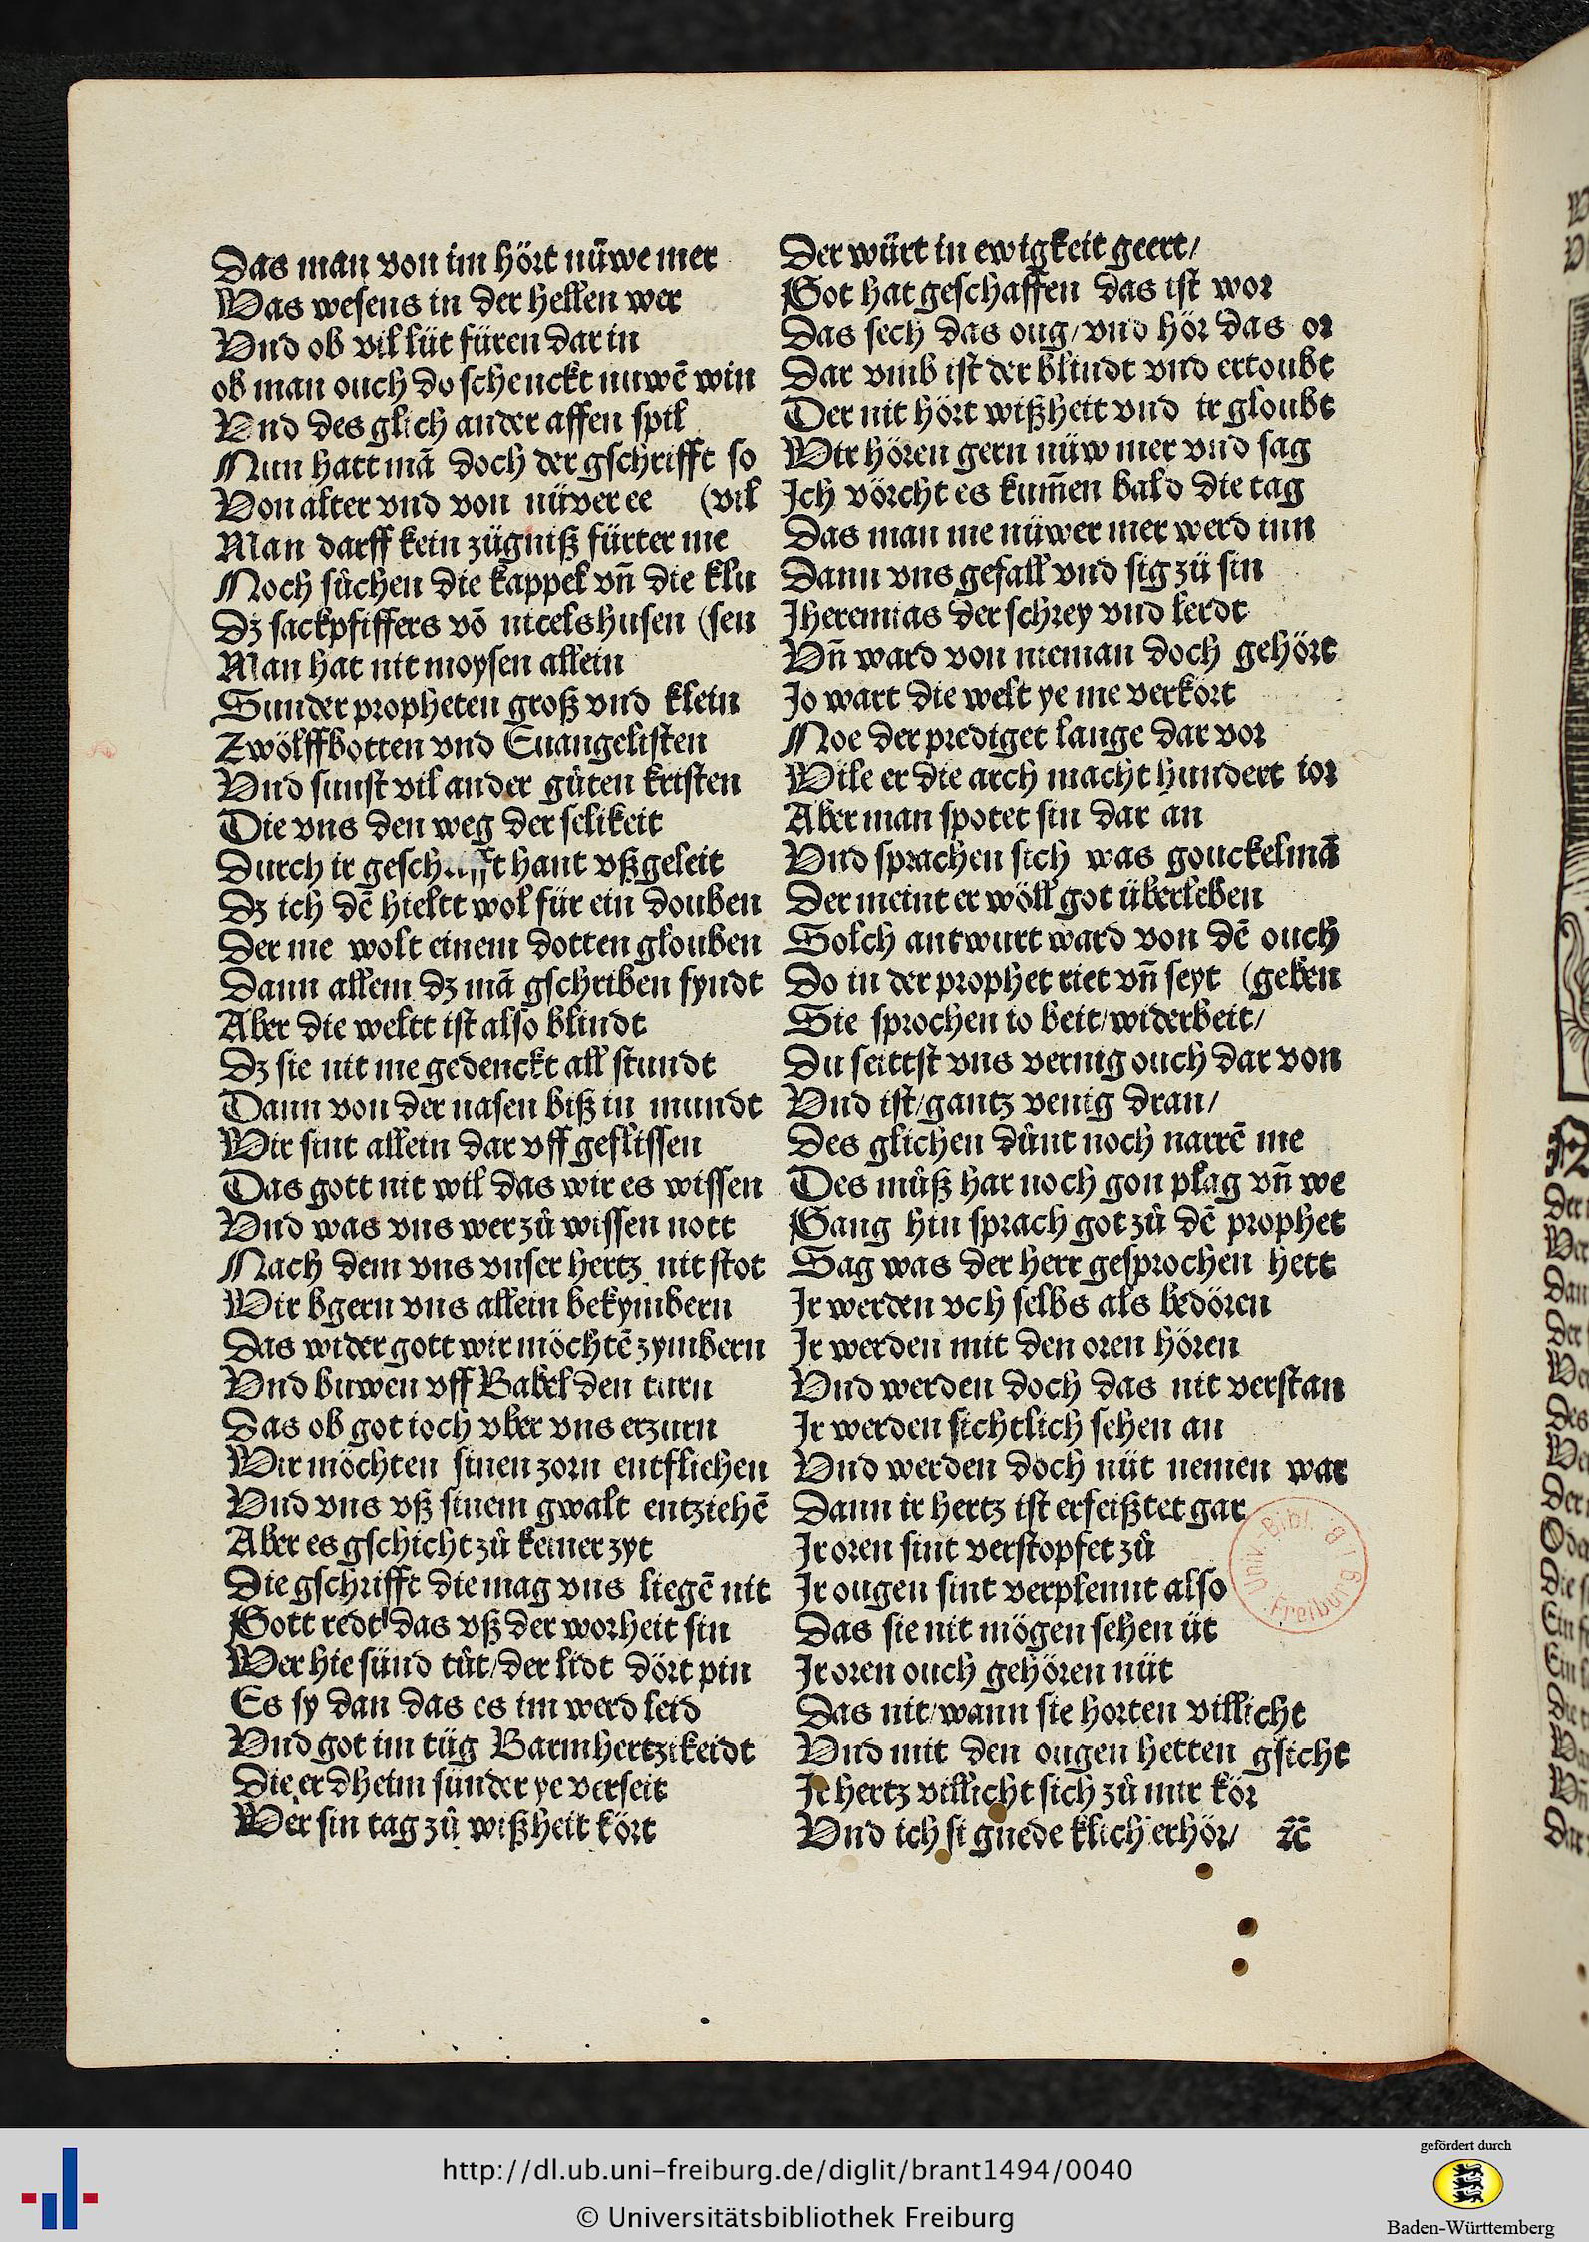 Das man von im hört nüwe mer
Was wesens in der hellen wer
Vnd ob vil lüt füren dar in
ob man ouch do schenckt nuwē win
Vnd des glich ander affen spil
Nun hatt mā doch der gschrifft so
Von alter vnd von nüver ee (vil
Man darff kein zügniß fürter me
Noch sůchen die kappel vn̄ die klu
Dz sackpfiffers vō nicelshusen (sen
Man hat nit moysen allein
Sunder propheten groß vnd klein
Zwölffbotten vnd Euangelisten
Vnd sunst vil ander gůten kristen
Die vns den weg der selikeit
Durch ir geschrifft hant vßgeleit
Dz ich dē hieltt wol für ein douben
Der me wolt einem dotten glouben
Dann allem dz mā gschriben fyndt
Aber die weltt ist also blindt
Dz sie nit me gedenckt all stundt
Dann von der nasen biß in mundt
Wir sint allein dar vff geflissen
Das gott nit wil das wir es wissen
Vnd was vns wer zů wissen nott
Nach dem vns vnser hertz nit stot
Wir bgern vns allein bekymbern
Das wider gott wir möchtē zymbern
Vnd buwen vff Babel den turn
Das ob got ioch vber vns erzurn
Wir möchten sinen zorn entfliehen
Vnd vns vß sinem gwalt entziehē
Aber es gschicht zů keiner zyt
Die gschrifft die mag vns liegē nit
Gott redt das vß der worheit sin
Wer hie sünd tůt/der lidt dört pin
Es sy dan das es im werd leid
Vnd got im tüg Barmhertzikeidt
Die er dheim sünder ye verseit
Wer sin tag zů wißheit kört
Der würt in ewigkeit geert/
Got hat geschaffen das ist wor
Das sech das oug/vnd hör das or
Dar vmb ist der blindt vnd ertoubt
Der nit hört wißheit vnd ir gloubt
Wir hören gern nüw mer vnd sag
Ich vörcht es kum̄en bald die tag
Das man me nüwer mer werd inn
Dann vns gefall vnd sig zü sin
Iheremias der schrey vnd lerdt
Vn̄ ward von nieman doch gehört
Jo wart die welt ye me verkort
Noe der prediget lange dar vor
Wile er die arch macht hundert ior
Aber man spotet sin dar an
Vnd sprachen sich was gouckelmā
Der meint er wöll got überleben
Solch antwurt ward von dē ouch
Do in der prophet riet vn̄ seyt (geben
Sie sprochen io beit/widerbeit/
Du seittst vns vernig ouch dar von
Vnd ist/gantz venig dran/
Des glichen důnt noch narrē me
Des můß har noch gon plag vn̄ we
Gang hin sprach got zů dē prophet
Sag was der herr gesprochen hett
Ir werden vch selbs als bedören
Ir werden mit den oren hören
Vnd werden doch das nit verstan
Ir werden sichtlich sehen an
Vnd werden doch nüt nemen war
Dann ir hertz ist erfeißtet gar
Ir oren sint verstopfet zů
Ir ougen sint verplennt also
Das sie nit mögen sehen üt
Ir oren ouch gehören nüt
Das nit/wann sie horten villicht
Vnd mit den ougen hetten gsicht
Ir hertz villicht sich zů mir kör
Vnd ich si gnedeklich erhör/ ⁊c̄
Univ. Bibl. Freiburg i. B.
http://dl.ub.uni-freiburg.de/diglit/brant1494/0040
© Universitätsbibliothek Freiburg
gefördert durch
Baden-Württemberg